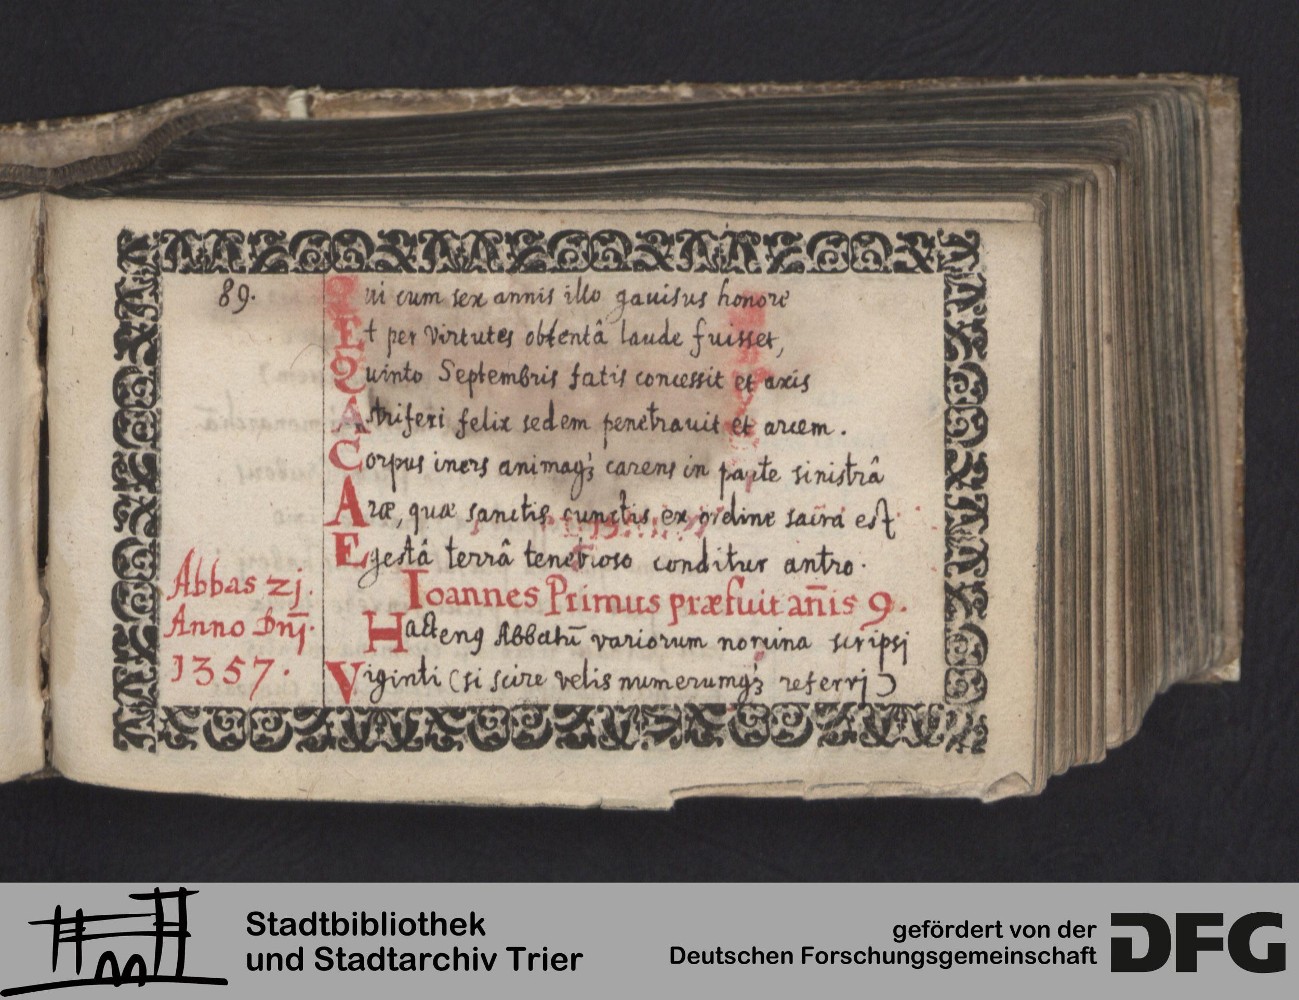 89.
Qui cum sex annis illo gauisus honore
Et per virtutes obtentâ laude fuisset,
Quinto Septembris fatis concessit et axis
Astriferi felix sedem penetrauit et arcem.
Corpus iners animaqꝫ carens in parte sinistrâ
Aræ, quæ sanctis cunctis ex ordine sacra est
Egestâ terrâ tenebroso conditur antro.
Abbas zj.
Anno Dn̄j.
1357.
Ioannes Primus præfuit an̄is 9.
Hactenꝰ Abbatū variorum nomina scripsj
Viginti (si scire velis numerumqꝫ referrj)
Stadtbibliothek
und Stadtarchiv Trier
gefördert von der
Deutschen Forschungsgemeinschaft
DFG